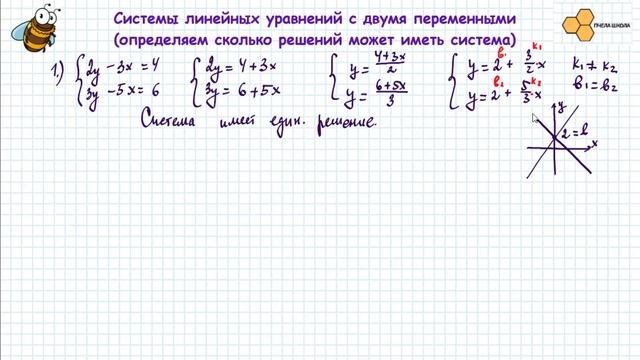 Системы линейных уравнений с двумя переменными
(определяем сколько решений может иметь система)
ПЧЕЛА ШКОЛА
1.) { 2y - 3x = 4 { 2y = 4 + 3x { y = (4+3x)/2 { y = 2 + 3/2 · x k₁ ≠ k₂
{ 3y - 5x = 6 { 3y = 6 + 5x { y = (6+5x)/3 { y = 2 + 5/3 · x b₁ = b₂
b₁ k₁
b₂ k₂
Система имеет един. решение.
y
2 = b
x